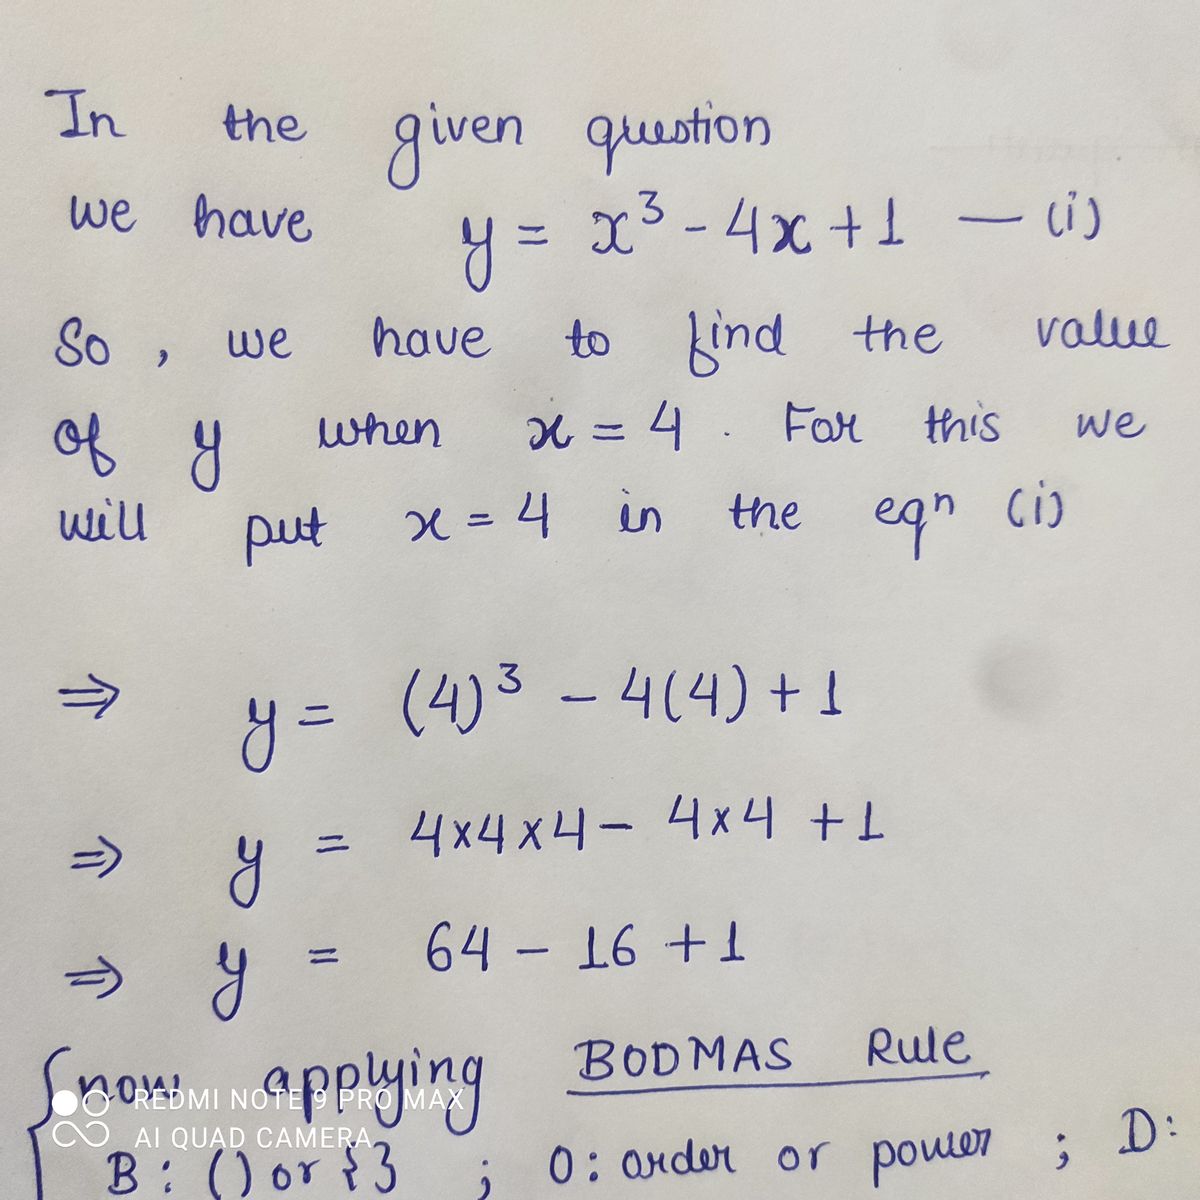 In the given question
we have y = x³ - 4x + 1 — (i)
So , we have to find the value
of y when x = 4 . For this we
will put x = 4 in the eqn (i)
⇒ y = (4)³ - 4(4) + 1
⇒ y = 4×4×4 - 4×4 + 1
⇒ y = 64 - 16 + 1
{ now applying BODMAS Rule
REDMI NOTE 9 PRO MAX
AI QUAD CAMERA
B : () or {} ; O : order or power ; D :